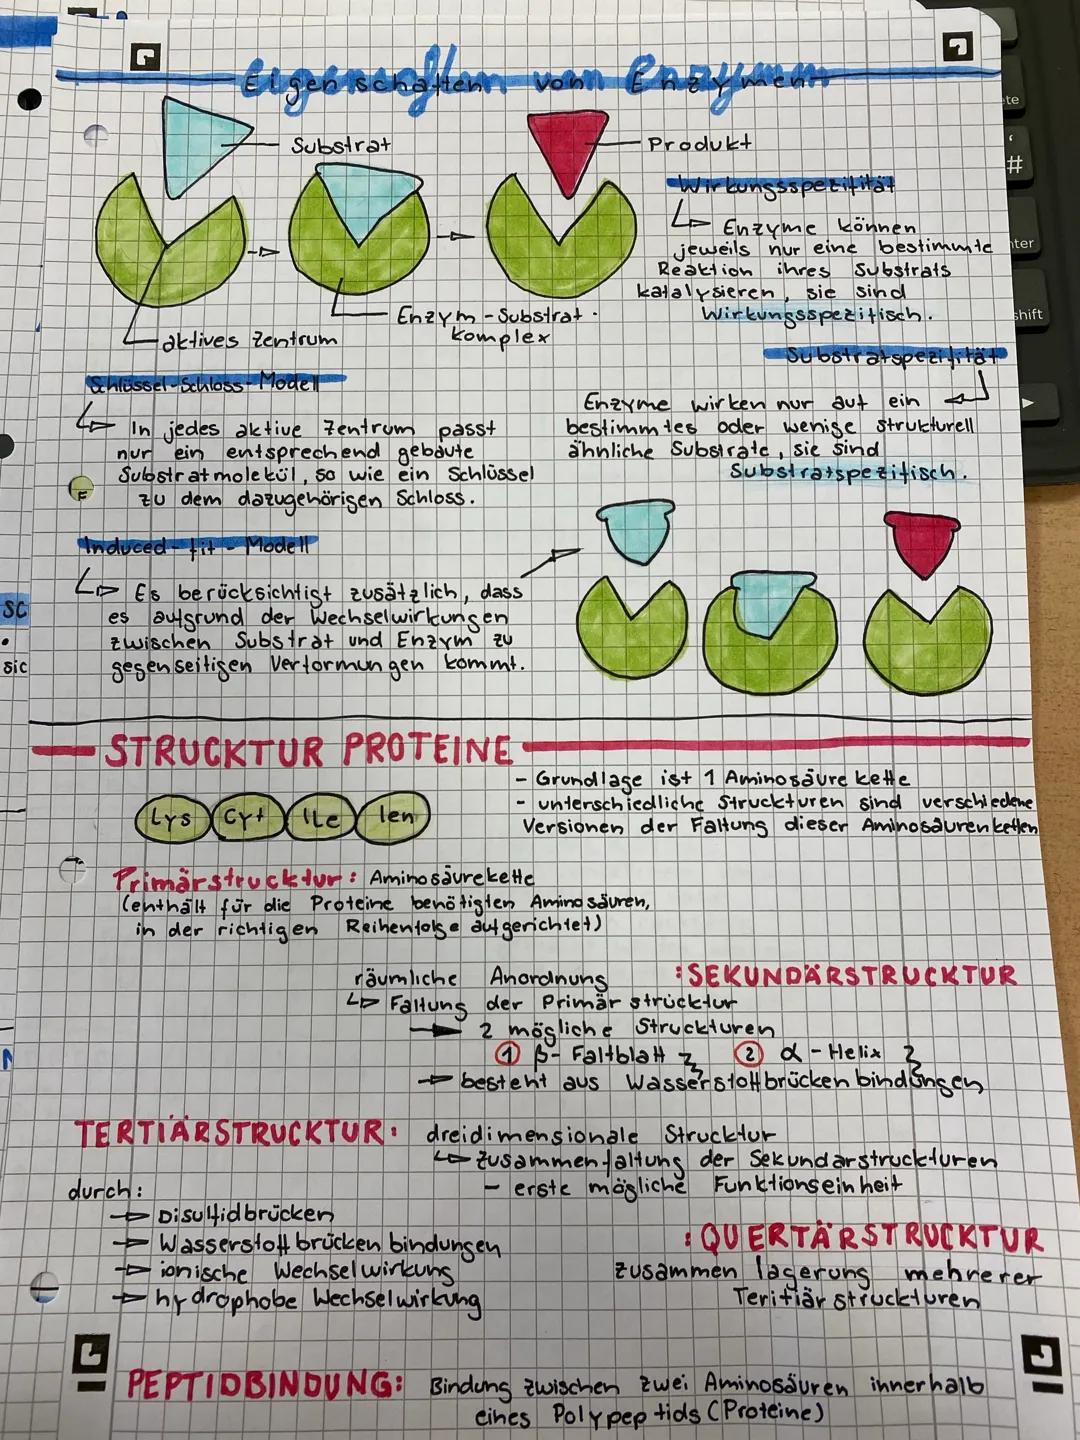 Eigenschaften von Enzymen
Substrat
Produkt
aktives Zentrum
Enzym - Substrat -
komplex
Wirkungsspezifität
Enzyme können
jeweils nur eine bestimmte
Reaktion ihres Substrats
katalysieren, sie sind
Wirkungsspezifisch.
Substratspezifität
Enzyme wirken nur auf ein
bestimmtes oder wenige strukturell
ähnliche Substrate, sie sind
Substratspezifisch.
Schlüssel-Schloss-Modell
In jedes aktive Zentrum passt
nur ein entsprechend gebaute
Substratmolekül, so wie ein Schlüssel
zu dem dazugehörigen Schloss.
Induced-fit-Modell
Es berücksichtigt zusätzlich, dass
es aufgrund der Wechselwirkungen
zwischen Substrat und Enzym zu
gegenseitigen Verformungen kommt.
STRUCKTUR PROTEINE
- Grundlage ist 1 Aminosäurekette
- unterschiedliche Struckturen sind verschiedene
Versionen der Faltung dieser Aminosäurenketten
Lys Cyt ILe len
Primärstrucktur: Aminosäurekette
(enthält für die Proteine benötigten Aminosäuren,
in der richtigen Reihenfolge aufgerichtet)
:SEKUNDÄRSTRUCKTUR
räumliche Anordnung
Faltung der Primärstrucktur
2 mögliche Struckturen
1 β-Faltblatt 2 α-Helix
besteht aus Wasserstoffbrückenbindungen
TERTIÄRSTRUCKTUR: dreidimensionale Strucktur
Zusammenfaltung der Sekundärstruckturen
- erste mögliche Funktionseinheit
durch:
Disulfidbrücken
Wasserstoffbrückenbindungen
ionische Wechselwirkung
hydrophobe Wechselwirkung
:QUERTÄRSTRUCKTUR
zusammenlagerung mehrerer
Teritiärstruckturen
PEPTIDBINDUNG: Bindung zwischen zwei Aminosäuren innerhalb
eines Polypeptids (Proteine)
SC
sic
#
shift